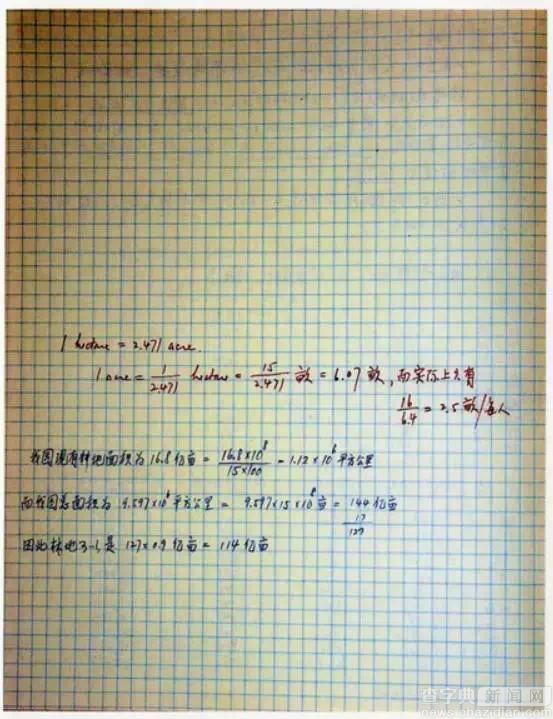 1 hectare = 2.471 acre.
1 acre = 1/2.471 hectare = 15/2.471 亩 = 6.07 亩, 而实际上只有
16/6.4 = 2.5 亩/每人
我国现有耕地面积为 16.8 亿亩 = 16.8×10⁸/15×100 = 1.12×10⁶ 平方公里
而我国总面积为 9.597×10⁶ 平方公里 = 9.597×15×10⁸ 亩 = 144 亿亩
17
127
因此林地 是 127×0.9 亿亩 = 114 亿亩
查字典 新闻网
news.chazidian.com